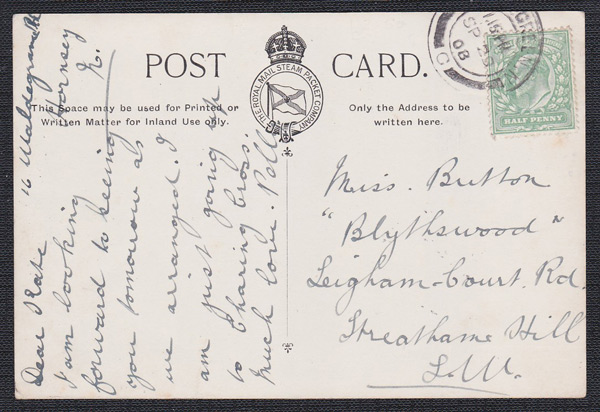 POST CARD.
THE ROYAL MAIL STEAM PACKET COMPANY
This Space may be used for Printed or
Written Matter for Inland Use only.
Only the Address to be
written here.
HALF PENNY
SP 25
08
16 Waldegrave Rd
Hornsey
N.
Dear Kate
I am looking
forward to seeing
you tomorrow as
we arranged. I
am just going
to Charing Cross.
Much love.
Miss. Button
"Blythswood"
Leigham-Court. Rd.
Streathame Hill
S.W.